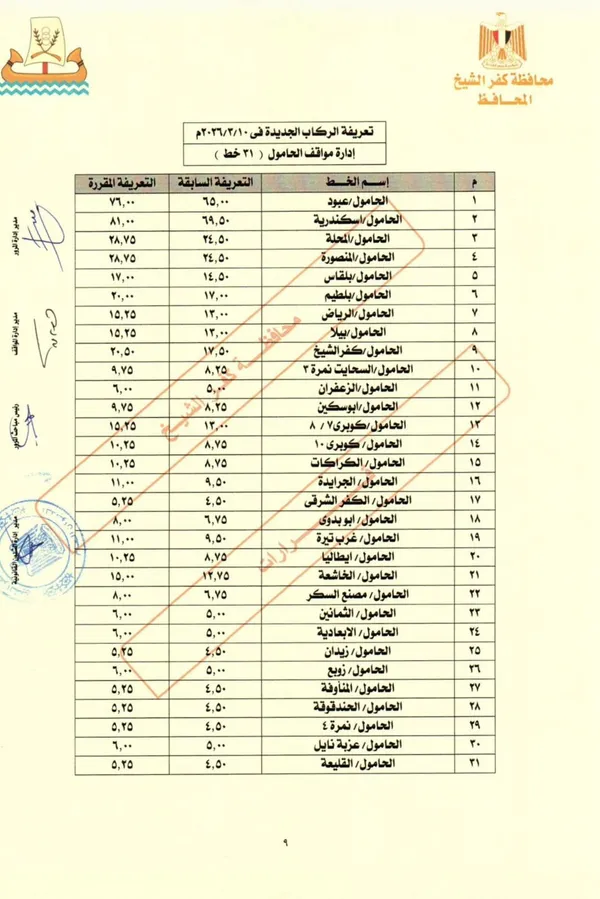 محافظة كفر الشيخ
المحافظ
تعريفة الركاب الجديدة فى ٢٠٢٦/٣/١٠م
إدارة مواقف الحامول ( ٣١ خط )
م إسم الخط التعريفة السابقة التعريفة المقررة
١ الحامول/عبود ٦٥,٠٠ ٧٦,٠٠
٢ الحامول/اسكندرية ٦٩,٥٠ ٨١,٠٠
٣ الحامول/المحلة ٢٤,٥٠ ٢٨,٧٥
٤ الحامول/المنصورة ٢٤,٥٠ ٢٨,٧٥
٥ الحامول/بلقاس ١٤,٥٠ ١٧,٠٠
٦ الحامول/بلطيم ١٧,٠٠ ٢٠,٠٠
٧ الحامول/الرياض ١٣,٠٠ ١٥,٢٥
٨ الحامول/بيلا ١٣,٠٠ ١٥,٢٥
٩ الحامول/كفرالشيخ ١٧,٥٠ ٢٠,٥٠
١٠ الحامول/السحايت نمرة ٣ ٨,٢٥ ٩,٧٥
١١ الحامول/الزعفران ٥,٠٠ ٦,٠٠
١٢ الحامول/ابوسكين ٨,٢٥ ٩,٧٥
١٣ الحامول/كوبرى٧ / ٨ ١٣,٠٠ ١٥,٢٥
١٤ الحامول/ كوبرى ١٠ ٨,٧٥ ١٠,٢٥
١٥ الحامول/ الكراكات ٨,٧٥ ١٠,٢٥
١٦ الحامول/ الجرايدة ٩,٥٠ ١١,٠٠
١٧ الحامول/ الكفر الشرقى ٤,٥٠ ٥,٢٥
١٨ الحامول/ ابو بدوى ٦,٧٥ ٨,٠٠
١٩ الحامول/ غرب تيرة ٩,٥٠ ١١,٠٠
٢٠ الحامول/ ايطاليا ٨,٧٥ ١٠,٢٥
٢١ الحامول/ الخاشعة ١٢,٧٥ ١٥,٠٠
٢٢ الحامول/ مصنع السكر ٦,٧٥ ٨,٠٠
٢٣ الحامول/ الثمانين ٥,٠٠ ٦,٠٠
٢٤ الحامول/ الابعادية ٥,٠٠ ٦,٠٠
٢٥ الحامول/ زيدان ٤,٥٠ ٥,٢٥
٢٦ الحامول/ زوبع ٥,٠٠ ٦,٠٠
٢٧ الحامول/ المناوفة ٤,٥٠ ٥,٢٥
٢٨ الحامول/ الحندقوقة ٤,٥٠ ٥,٢٥
٢٩ الحامول/ نمرة ٤ ٤,٥٠ ٥,٢٥
٣٠ الحامول/ عزبة نايل ٥,٠٠ ٦,٠٠
٣١ الحامول/ القليعة ٤,٥٠ ٥,٢٥
محافظة كفر الشيخ
مدير إدارة المرور
مدير إدارة المواقف
رئيس مباحث المرور
مدير إدارة الشئون القانونية
٩